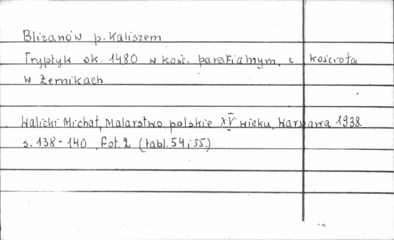 Blizanów p. Kaliszem
Tryptyk ok. 1480 w kość. parafialnym, z kościoła
w Żernikach
Walicki Michał, Malarstwo polskie XV wieku, Warszawa 1938
s. 138-140, fot. 2 (tabl. 54 i 55.)